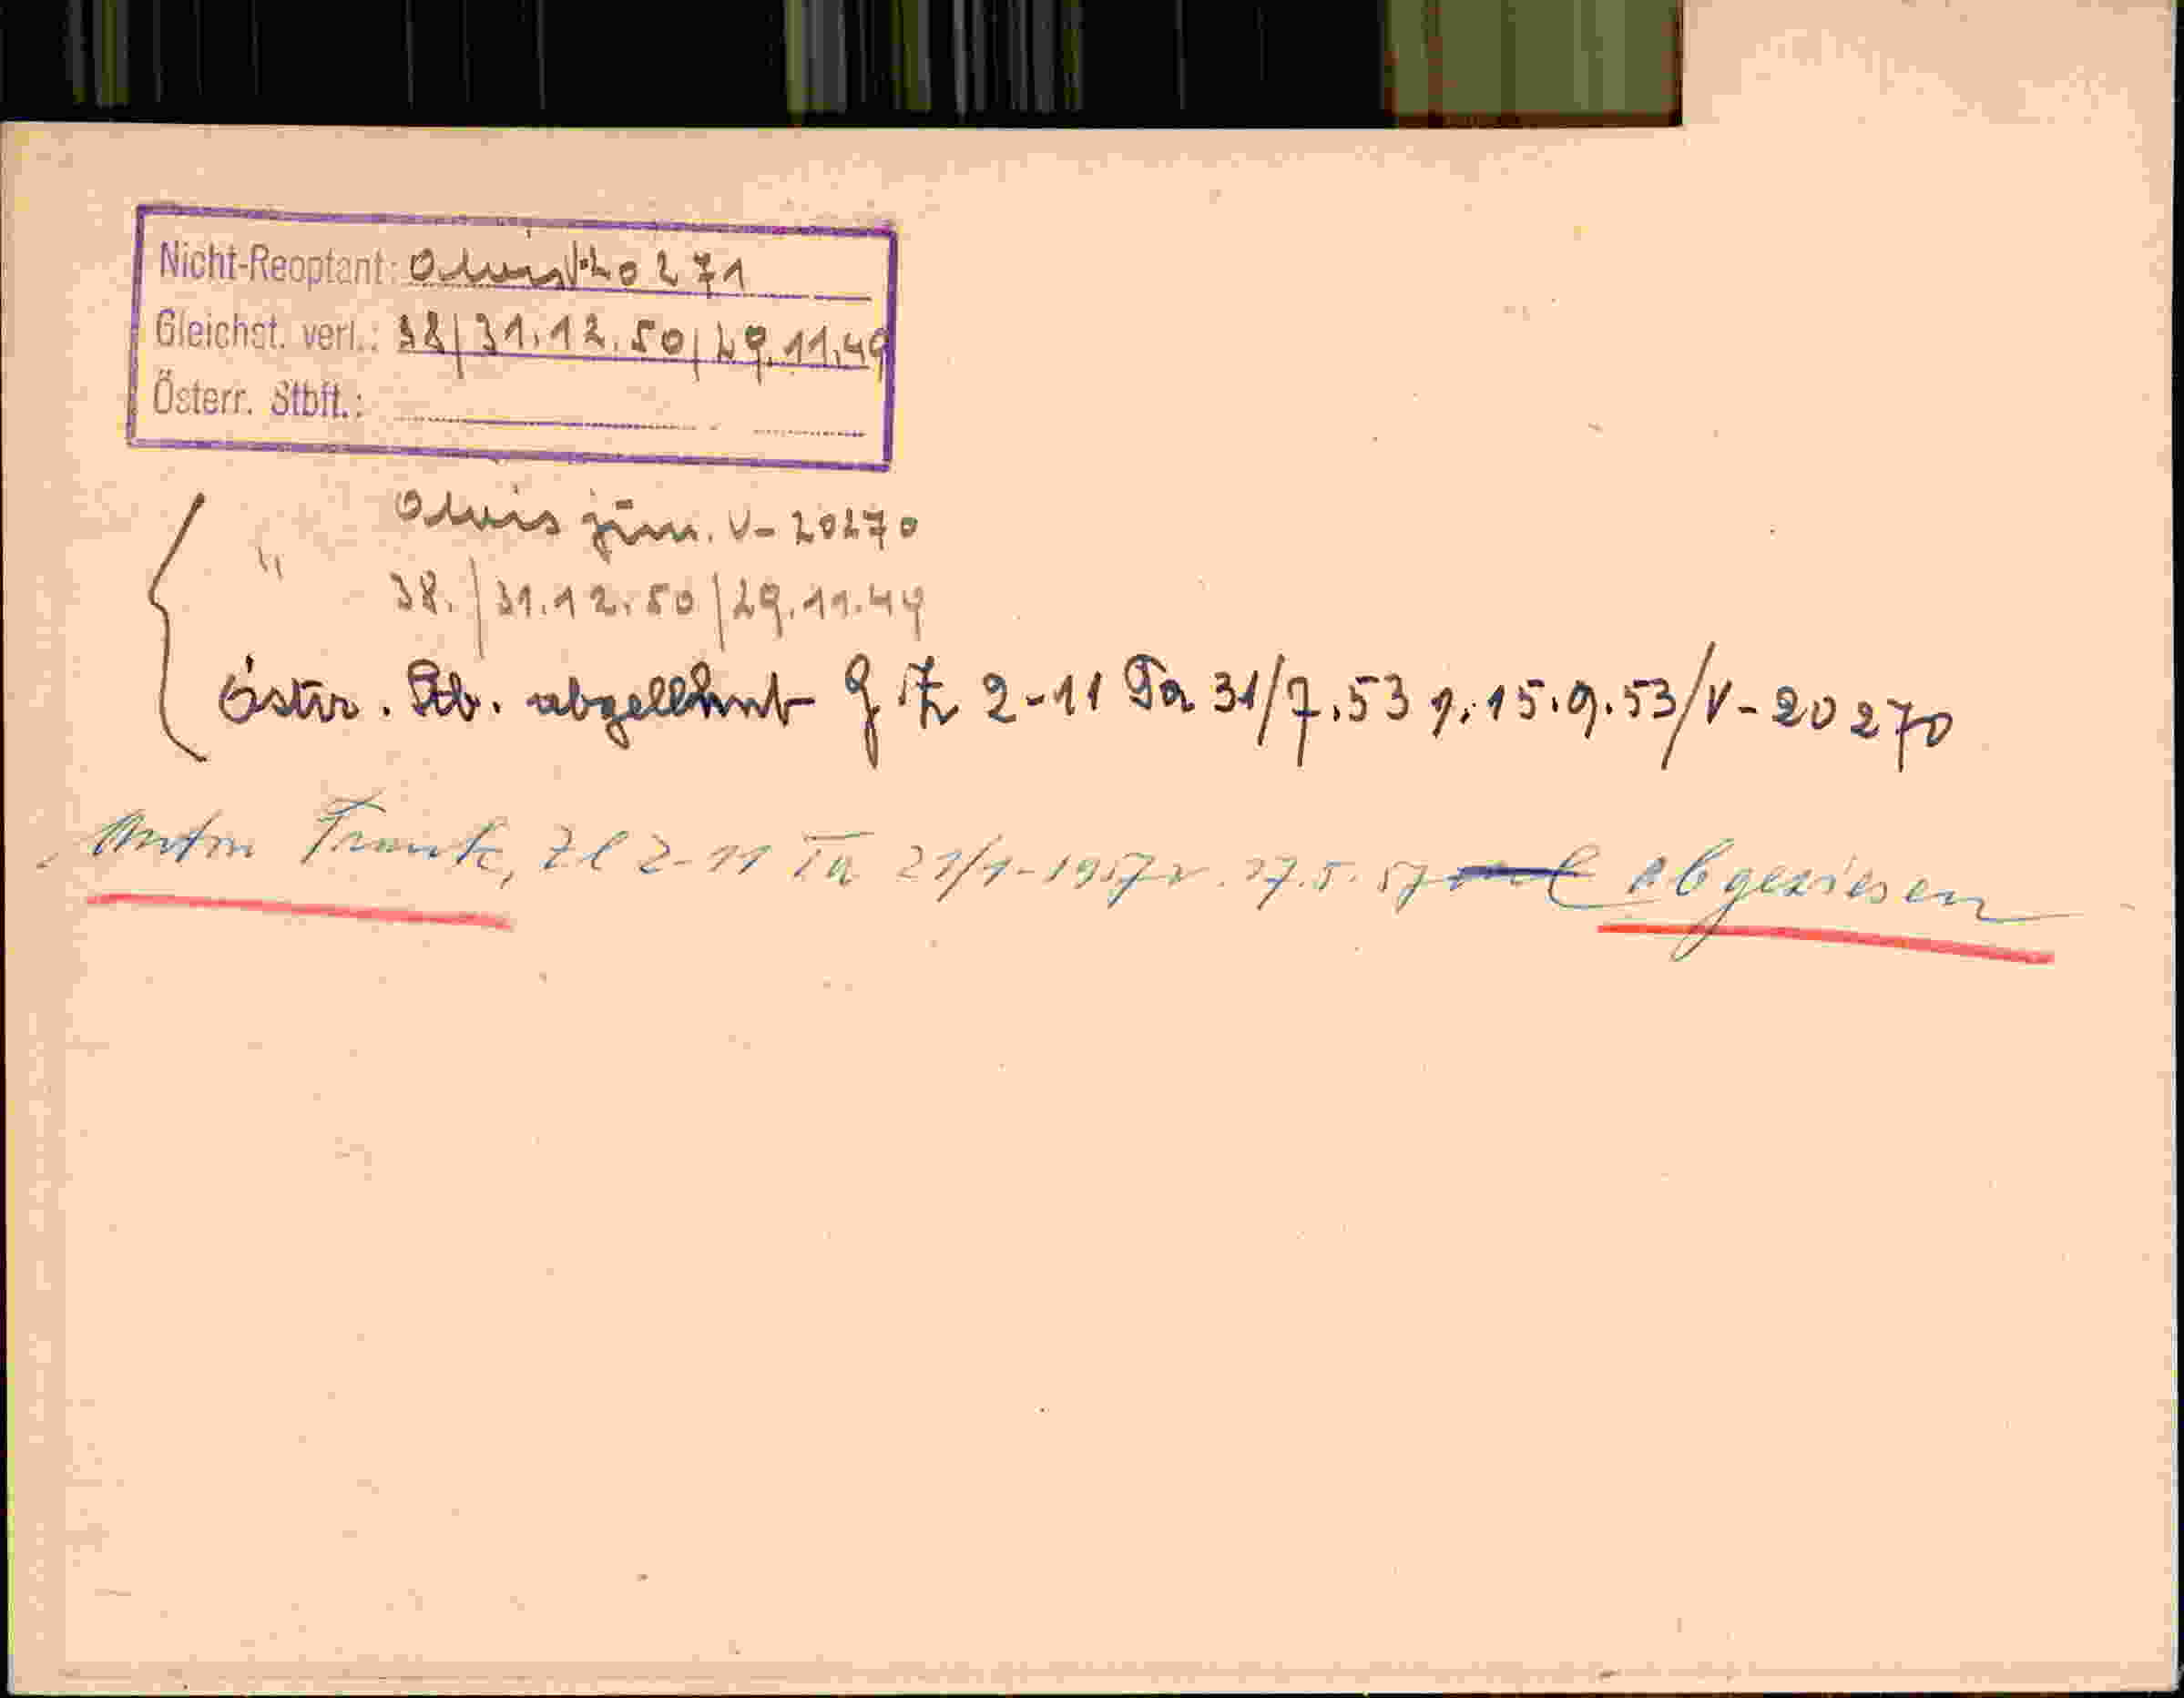 Nicht-Reoptant: Alois V-20271
Gleichst. verl.: 38/31.12.50/29.11.49
Österr. Stbft.:
Alois jun. V-20270
" 38./31.12.50/29.11.49
Östrr. Stb. abgellehnt G Z 2-11 Ta 31/7.53 v. 15.9.53/V-20270
Anton Trank, Zl 2-11 Ta 21/1-1957 v. 27.5.57 abgewiesen